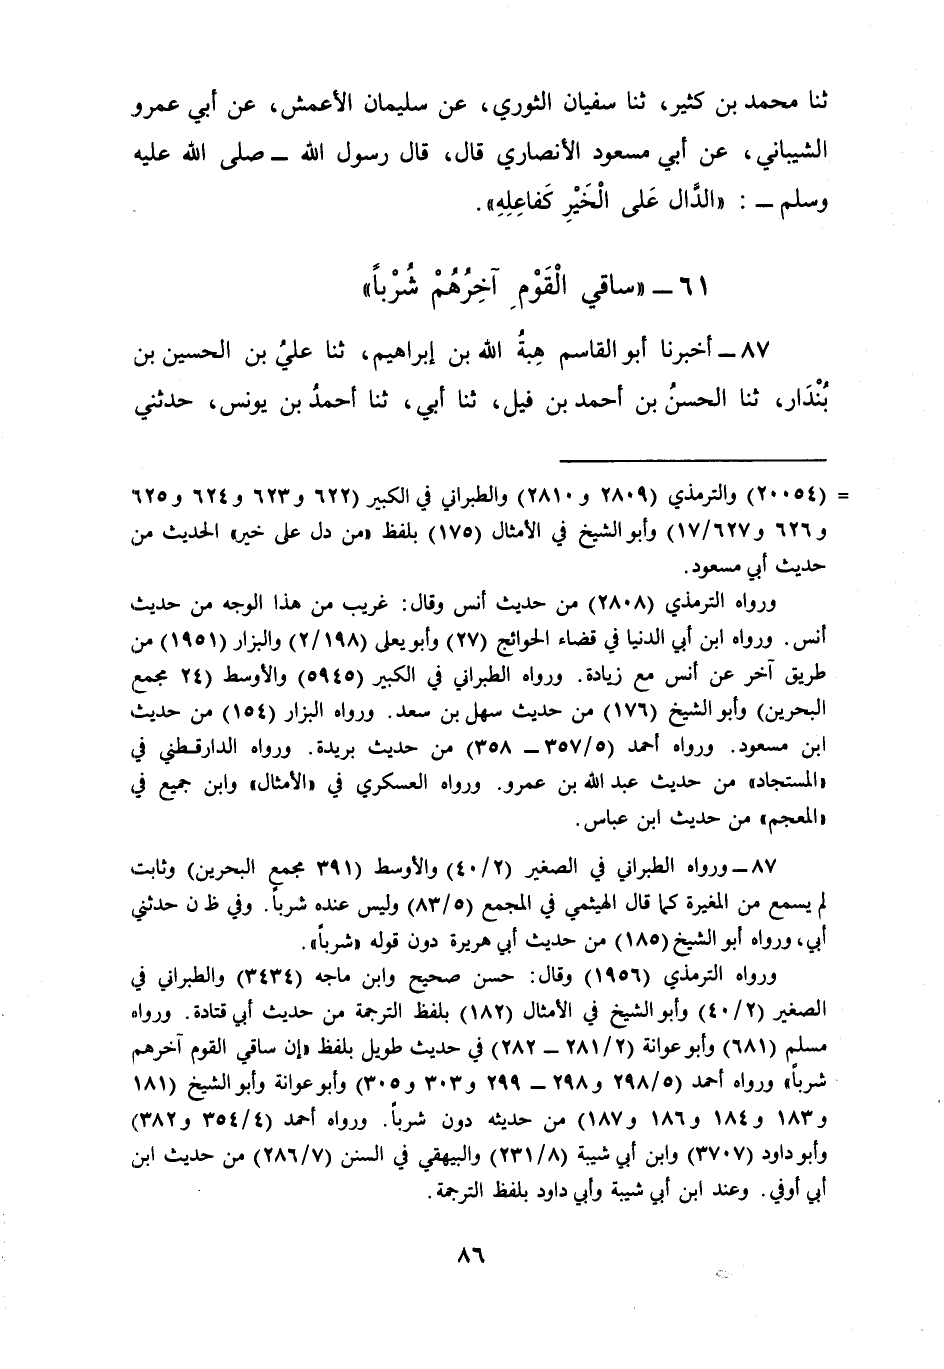 ثنا محمد بن كثير، ثنا سفيان الثوري، عن سليمان الأعمش، عن أبي عمرو
الشيباني، عن أبي مسعود الأنصاري قال، قال رسول الله ــ صلى الله عليه
وسلم ــ : «الدَّال عَلى الْخَيْرِ كَفاعِلِهِ».
٦١ ــ «ساقي الْقَوْمِ آخِرُهُمْ شُرْباً»
٨٧ ــ أخبرنا أبو القاسم هِبةُ الله بن إبراهيم، ثنا عليُ بن الحسين بن
بُنْدَار، ثنا الحسنُ بن أحمد بن فيل، ثنا أبي، ثنا أحمدُ بن يونس، حدثني
= (٢٠٠٥٤) والترمذي (٢٨٠٩ و ٢٨١٠) والطبراني في الكبير (٦٢٢ و ٦٢٣ و ٦٢٤ و ٦٢٥
و ٦٢٦ و ١٧/٦٢٧) وأبو الشيخ في الأمثال (١٧٥) بلفظ «من دل على خير» الحديث من
حديث أبي مسعود.
ورواه الترمذي (٢٨٠٨) من حديث أنس وقال: غريب من هذا الوجه من حديث
أنس. ورواه ابن أبي الدنيا في قضاء الحوائج (٢٧) وأبو يعلى (٢/١٩٨) والبزار (١٩٥١) من
طريق آخر عن أنس مع زيادة. ورواه الطبراني في الكبير (٥٩٤٥) والأوسط (٢٤ مجمع
البحرين) وأبو الشيخ (١٧٦) من حديث سهل بن سعد. ورواه البزار (١٥٤) من حديث
ابن مسعود. ورواه أحمد (٣٥٧/٥ ــ ٣٥٨) من حديث بريدة. ورواه الدارقطني في
«المستجاد» من حديث عبد الله بن عمرو. ورواه العسكري في «الأمثال» وابن جميع في
«المعجم» من حديث ابن عباس.
٨٧ ــ ورواه الطبراني في الصغير (٤٠/٢) والأوسط (٣٩١ مجمع البحرين) وثابت
لم يسمع من المغيرة كما قال الهيثمي في المجمع (٨٣/٥) وليس عنده شرباً. وفي ظ ن حدثني
أبي، ورواه أبو الشيخ (١٨٥) من حديث أبي هريرة دون قوله «شرباً».
ورواه الترمذي (١٩٥٦) وقال: حسن صحيح وابن ماجه (٣٤٣٤) والطبراني في
الصغير (٤٠/٢) وأبو الشيخ في الأمثال (١٨٢) بلفظ الترجمة من حديث أبي قتادة. ورواه
مسلم (٦٨١) وأبو عوانة (٢٨١/٢ ــ ٢٨٢) في حديث طويل بلفظ «إن ساقي القوم آخرهم
شرباً» ورواه أحمد (٢٩٨/٥ و ٢٩٨ ــ ٢٩٩ و ٣٠٣ و ٣٠٥) وأبو عوانة وأبو الشيخ (١٨١
و ١٨٣ و ١٨٤ و ١٨٦ و ١٨٧) من حديثه دون شرباً. ورواه أحمد (٣٥٤/٤ و ٣٨٢)
وأبو داود (٣٧٠٧) وابن أبي شيبة (٢٣١/٨) والبيهقي في السنن (٢٨٦/٧) من حديث ابن
أبي أوفي. وعند ابن أبي شيبة وأبي داود بلفظ الترجمة.
٨٦